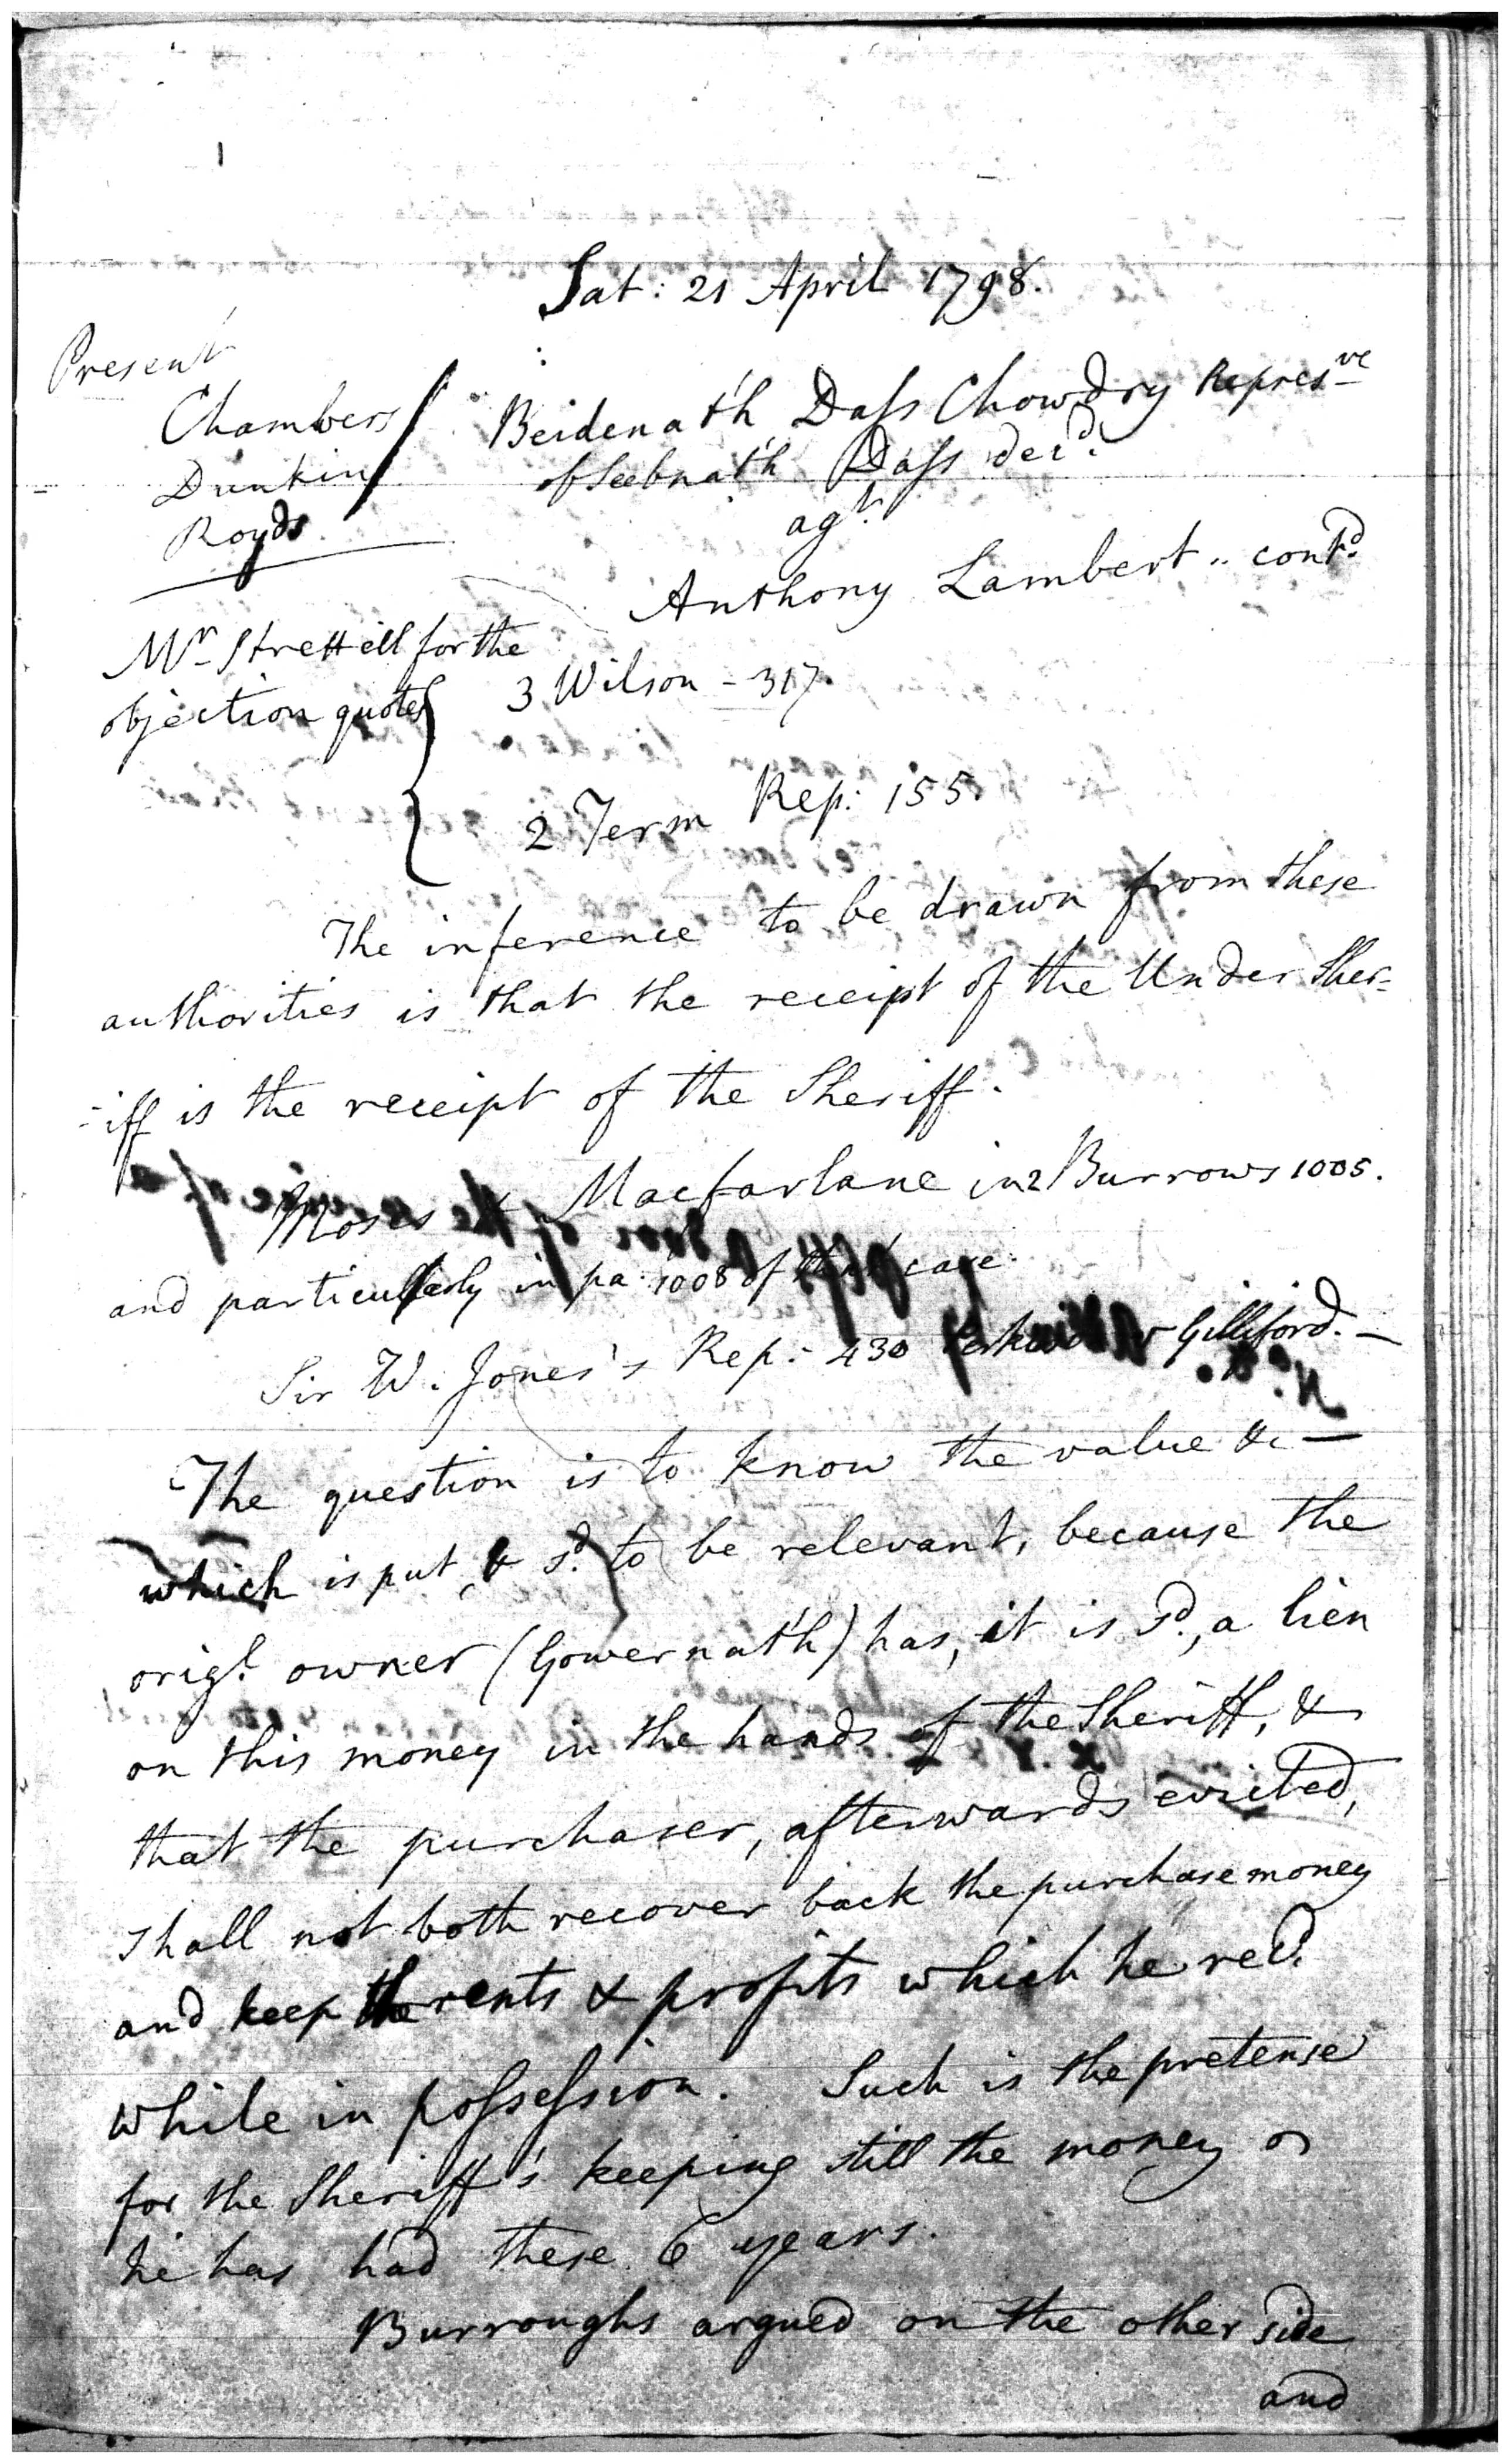 Sat: 21 April 1798.
Present
Chambers
Dunkin
Royds
Beidenath Dass Chowdry Represve
of Seebnath Dass decd.
agt.
Anthony Lambert .. contd.
Mr Strettell for the
objection quotes
3 Wilson - 317.
2 Term Rep: 155.
The inference to be drawn from these
authorities is that the receipt of the Under Sher-
-iff is the receipt of the Sheriff.
Moses v Macfarlane in 2 Burrows 1005.
and particularly in pa. 1008 of that case.
Sir W. Jones's Rep: 430 v Gilliford. —
The question is to know the value &c —
which is put, & sd. to be relevant, because the
origl. owner (Gowernath) has, it is sd., a lien
on this money in the hands of the Sheriff, &
that the purchaser, afterwards evicted,
shall not both recover back the purchase money
and keep the rents & profits which he recd.
while in possession. Such is the pretense
for the Sheriff's keeping still the money
he has had these 6 years.
Burroughs argued on the other side
and